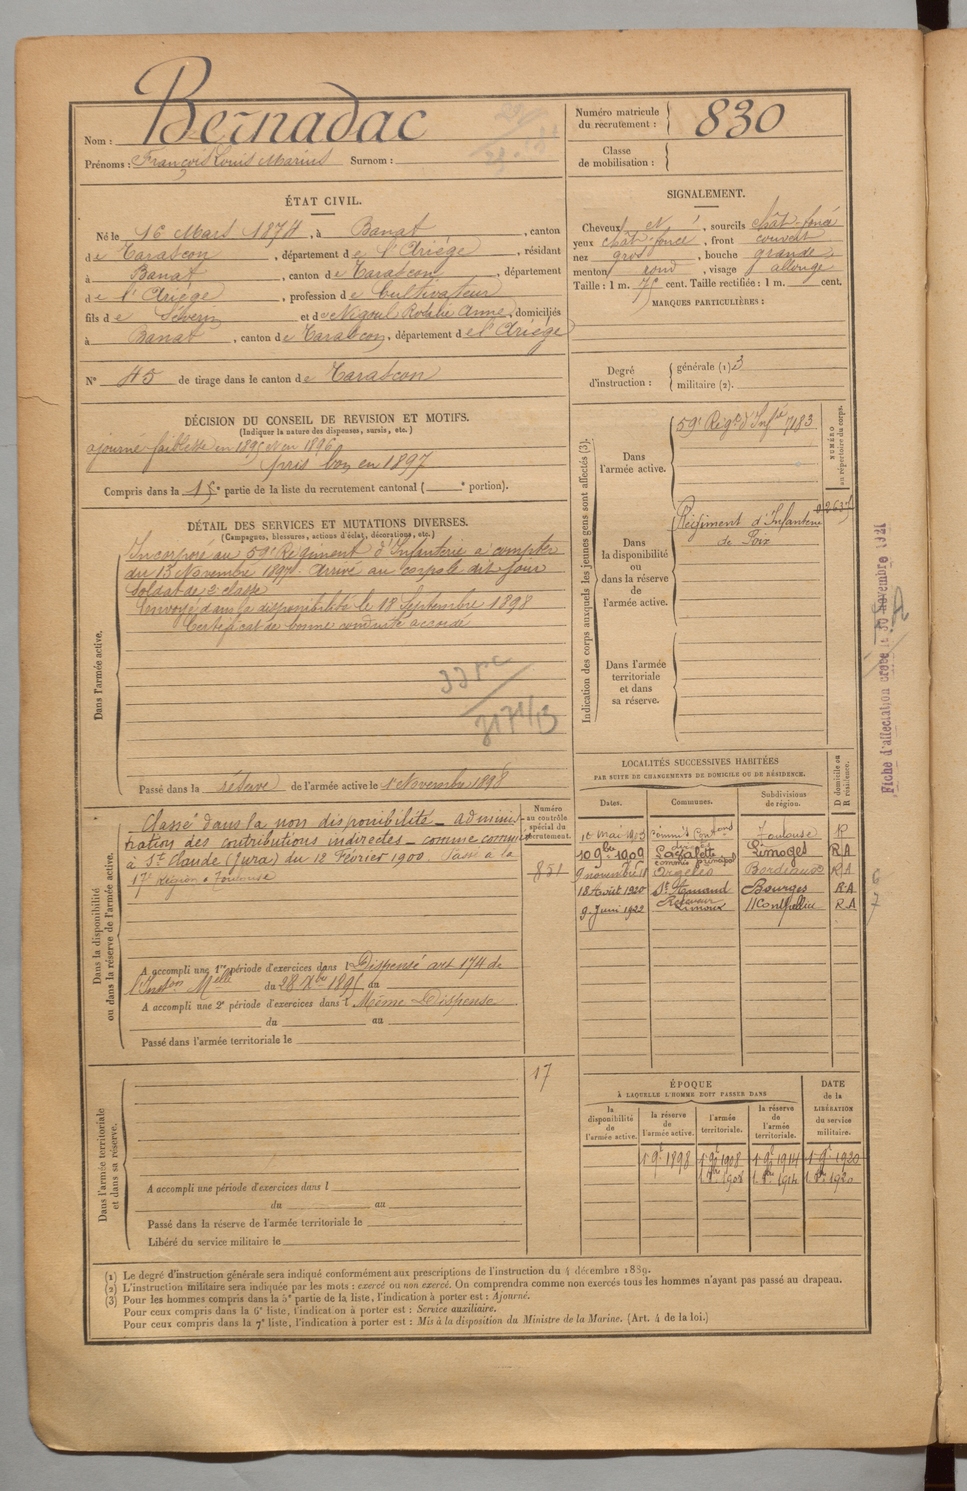 Nom : Bernadac
Prénoms : François Louis Marius Surnom :
Numéro matricule du recrutement : 830
Classe de mobilisation :
ÉTAT CIVIL.
Né le 16 Mars 1874, à Banat, canton
de Tarascon, département de l'Ariége, résidant
à Banat, canton de Tarascon, département
de l'Ariége, profession de Cultivateur
fils de Séverin et de Négoul Rosalie Anne, domiciliés
à Banat, canton de Tarascon, département de l'Ariége
N° 45 de tirage dans le canton de Tarascon
DÉCISION DU CONSEIL DE REVISION ET MOTIFS.
(Indiquer la nature des dispenses, sursis, etc.)
ajourné faiblesse en 1895 et en 1896
pris bon en 1897
Compris dans la partie de la liste du recrutement cantonal ( portion).
DÉTAIL DES SERVICES ET MUTATIONS DIVERSES.
(Campagnes, blessures, actions d'éclat, décorations, etc.)
Dans l'armée active.
Incorporé au 59e Régiment d'Infanterie à compter
du 13 Novembre 1897. Arrivé au corps le dit jour
Soldat de 2e classe
Envoyé dans la disponibilité le 18 Septembre 1898
Certificat de bonne conduite accordé
Passé dans la réserve de l'armée active le 1 Novembre 1898
Dans la disponibilité ou dans la réserve de l'armée active.
Classé dans la non disponibilité - adminis-
tration des contributions indirectes - comme commis
à St Claude (Jura) du 12 Février 1900. Passé à la
17e Région à Toulouse
Numéro au contrôle spécial du recrutement.
851
A accompli une 1re période d'exercices dans l Dispensé art 174 de
l'Inston Mlle du 28 Xbre 1895 du
A accompli une 2e période d'exercices dans l Même Dispense
du au
Passé dans l'armée territoriale le
Dans l'armée territoriale et dans sa réserve.
17
A accompli une période d'exercices dans l
du au
Passé dans la réserve de l'armée territoriale le
Libéré du service militaire le
SIGNALEMENT.
Cheveux et, sourcils chât-foncé
yeux chât-foncé, front couvert
nez gros, bouche grande
menton rond, visage allongé
Taille : 1 m. cent. Taille rectifiée : 1 m. cent.
MARQUES PARTICULIÈRES :
Degré d'instruction : générale (1) 3
militaire (2).
Indication des corps auxquels les jeunes gens sont affectés (3).
NUMÉRO au répertoire du corps.
Dans l'armée active.
59e Régt d'Infie 7183
Dans la disponibilité ou dans la réserve de l'armée active.
Régiment d'Infanterie
de Foix
Dans l'armée territoriale et dans sa réserve.
Fiche d'affectation créée le 30 novembre 1921
LOCALITÉS SUCCESSIVES HABITÉES
PAR SUITE DE CHANGEMENTS DE DOMICILE OU DE RÉSIDENCE.
Dates. Communes. Subdivisions de région. D domicile ou R résidence.
10 mai 1903 Toulouse R
10 9bre 1909 Limoges R A
9 novembre commis principal Argelès Bordeaux R A
18 Août 1920 St Amand Bourges R.A
9 Juin 1922 Receveur Limoux Montpellier R.A
ÉPOQUE
À LAQUELLE L'HOMME DOIT PASSER DANS
DATE de la LIBÉRATION du service militaire.
la disponibilité de l'armée active. la réserve de l'armée active. l'armée territoriale. la réserve de l'armée territoriale.
1 9bre 1898 1 9bre 1908 1 9bre 1914 1 9bre 1920
1 1908 1 1914 1 1920
(1) Le degré d'instruction générale sera indiqué conformément aux prescriptions de l'instruction du 4 décembre 1889.
(2) L'instruction militaire sera indiquée par les mots : exercé ou non exercé. On comprendra comme non exercés tous les hommes n'ayant pas passé au drapeau.
(3) Pour les hommes compris dans la 5e partie de la liste, l'indication à porter est : Ajourné.
Pour ceux compris dans la 6e liste, l'indication à porter est : Service auxiliaire.
Pour ceux compris dans la 7e liste, l'indication à porter est : Mis à la disposition du Ministre de la Marine. (Art. 4 de la loi.)